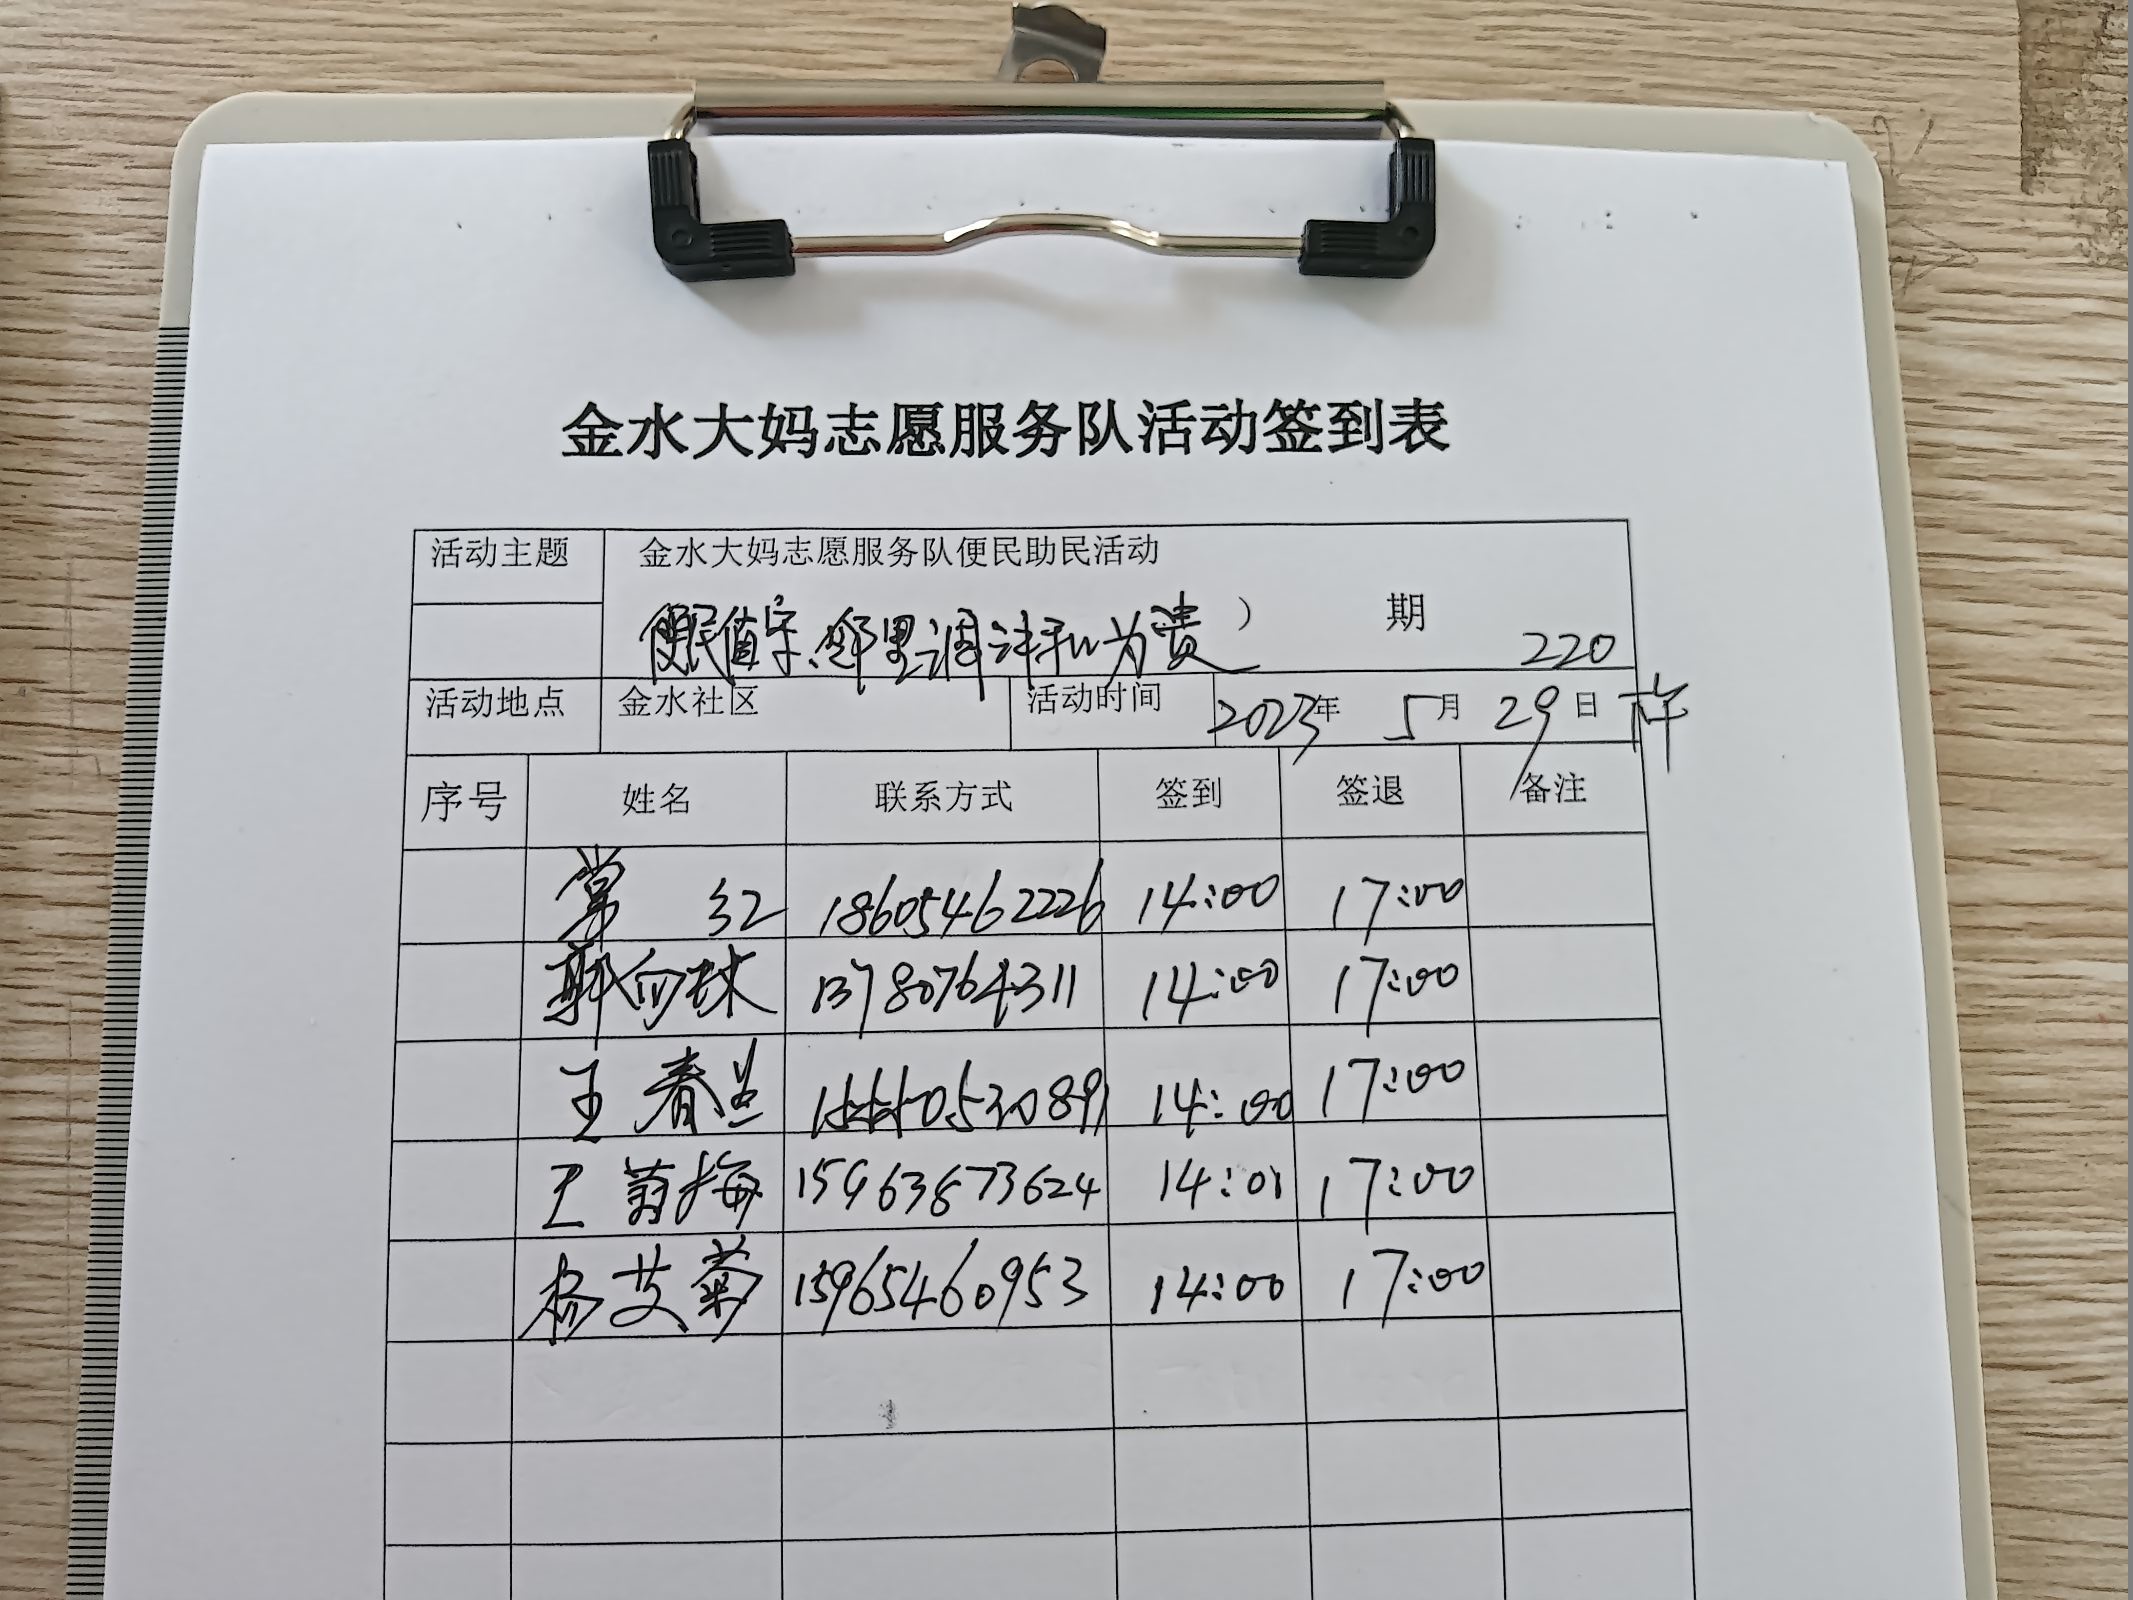 金水大妈志愿服务队活动签到表
活动主题 金水大妈志愿服务队便民助民活动
便民值守、邻里调讲和为贵 ） 期 220
活动地点 金水社区 活动时间 2023年 5月 29日
序号 姓名 联系方式 签到 签退 备注
常 红 18605462226 14:00 17:00
郭向球 13780764311 14:00 17:00
王春兰 14:00 17:00
王菊梅 15963873624 14:01 17:00
杨艾菊 15965460953 14:00 17:00